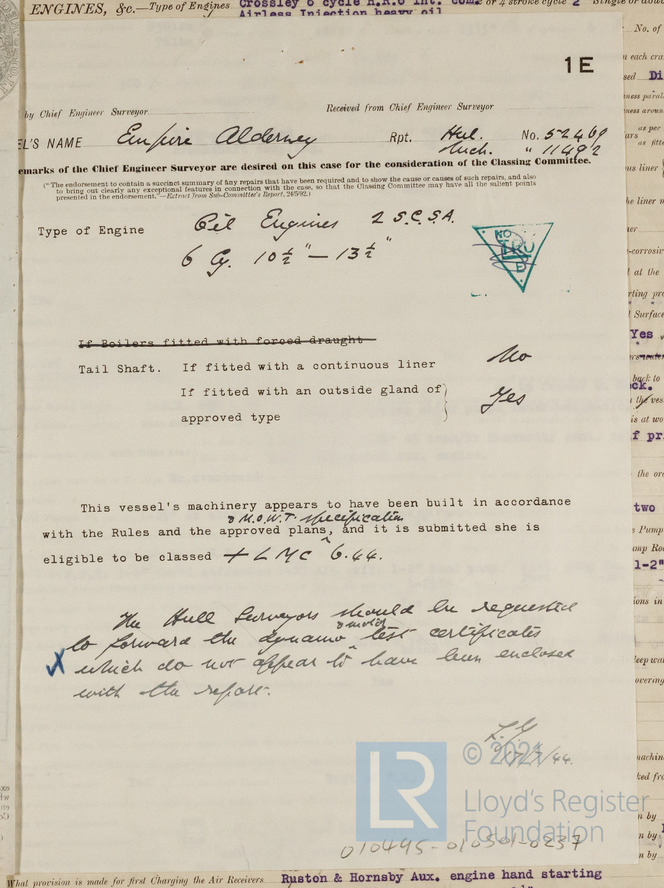 ENGINES, &c.—Type of Engines Crossley 6 cycle H.R.6 Int. Comb. or 4 stroke cycle 2 Single or dou
Airless Injection heavy oil
1E
by Chief Engineer Surveyor
Received from Chief Engineer Surveyor
EL'S NAME Empire Alderney Rpt. Hul. No. 52469
Much. " 11492
emarks of the Chief Engineer Surveyor are desired on this case for the consideration of the Classing Committee.
("The endorsement to contain a succinct summary of any repairs that have been required and to show the cause or causes of such repairs, and also
to bring out clearly any exceptional features in connection with the case, so that the Classing Committee may have all the salient points
presented in the endorsement."—Extract from Sub-Committee's Report, 24/5/92.)
Type of Engine Oil Engines 2 S.C.S.A.
6 Cy. 10½" — 13½"
If Boilers fitted with forced draught
Tail Shaft. If fitted with a continuous liner No
If fitted with an outside gland of } Yes
approved type
This vessel's machinery appears to have been built in accordance
& M.O.W.T. specification
with the Rules and the approved plans, and it is submitted she is
eligible to be classed + LMC 6.44.
The Hull Surveyors should be requested
to forward the dynamo & motor test certificates
x which do not appear to have been enclosed
with the report.
17/7/44.
© 2021
LR
Lloyd's Register
Foundation
010495-010501-0237
What provision is made for first Charging the Air Receivers Ruston & Hornsby Aux. engine hand starting
No. of
Yes
two